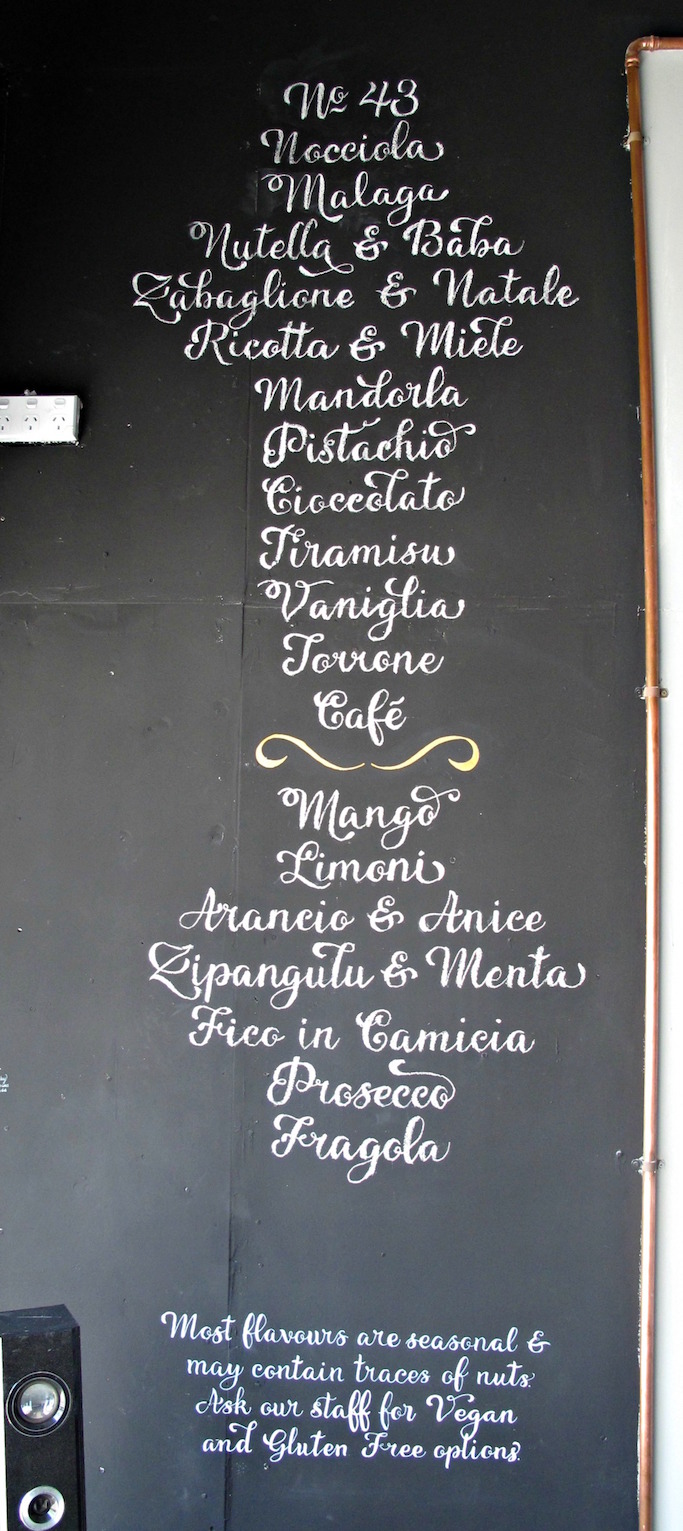 Nº 43
Nocciola
Malaga
Nutella & Baba
Zabaglione & Natale
Ricotta & Miele
Mandorla
Pistachio
Cioccolato
Tiramisu
Vaniglia
Torrone
Café
Mango
Limoni
Arancio & Anice
Zipangulu & Menta
Fico in Camicia
Prosecco
Fragola
Most flavours are seasonal &
may contain traces of nuts.
Ask our staff for Vegan
and Gluten Free options.